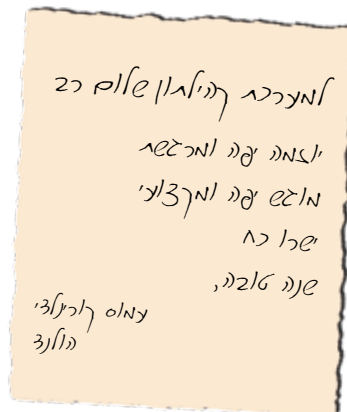 למערכת קהילתון שלום רב
יוזמה יפה ומרגשת
מוגש יפה ומקצועי
ישרו כח
שנה טובה,
עמוס קורינלדי
הולנד